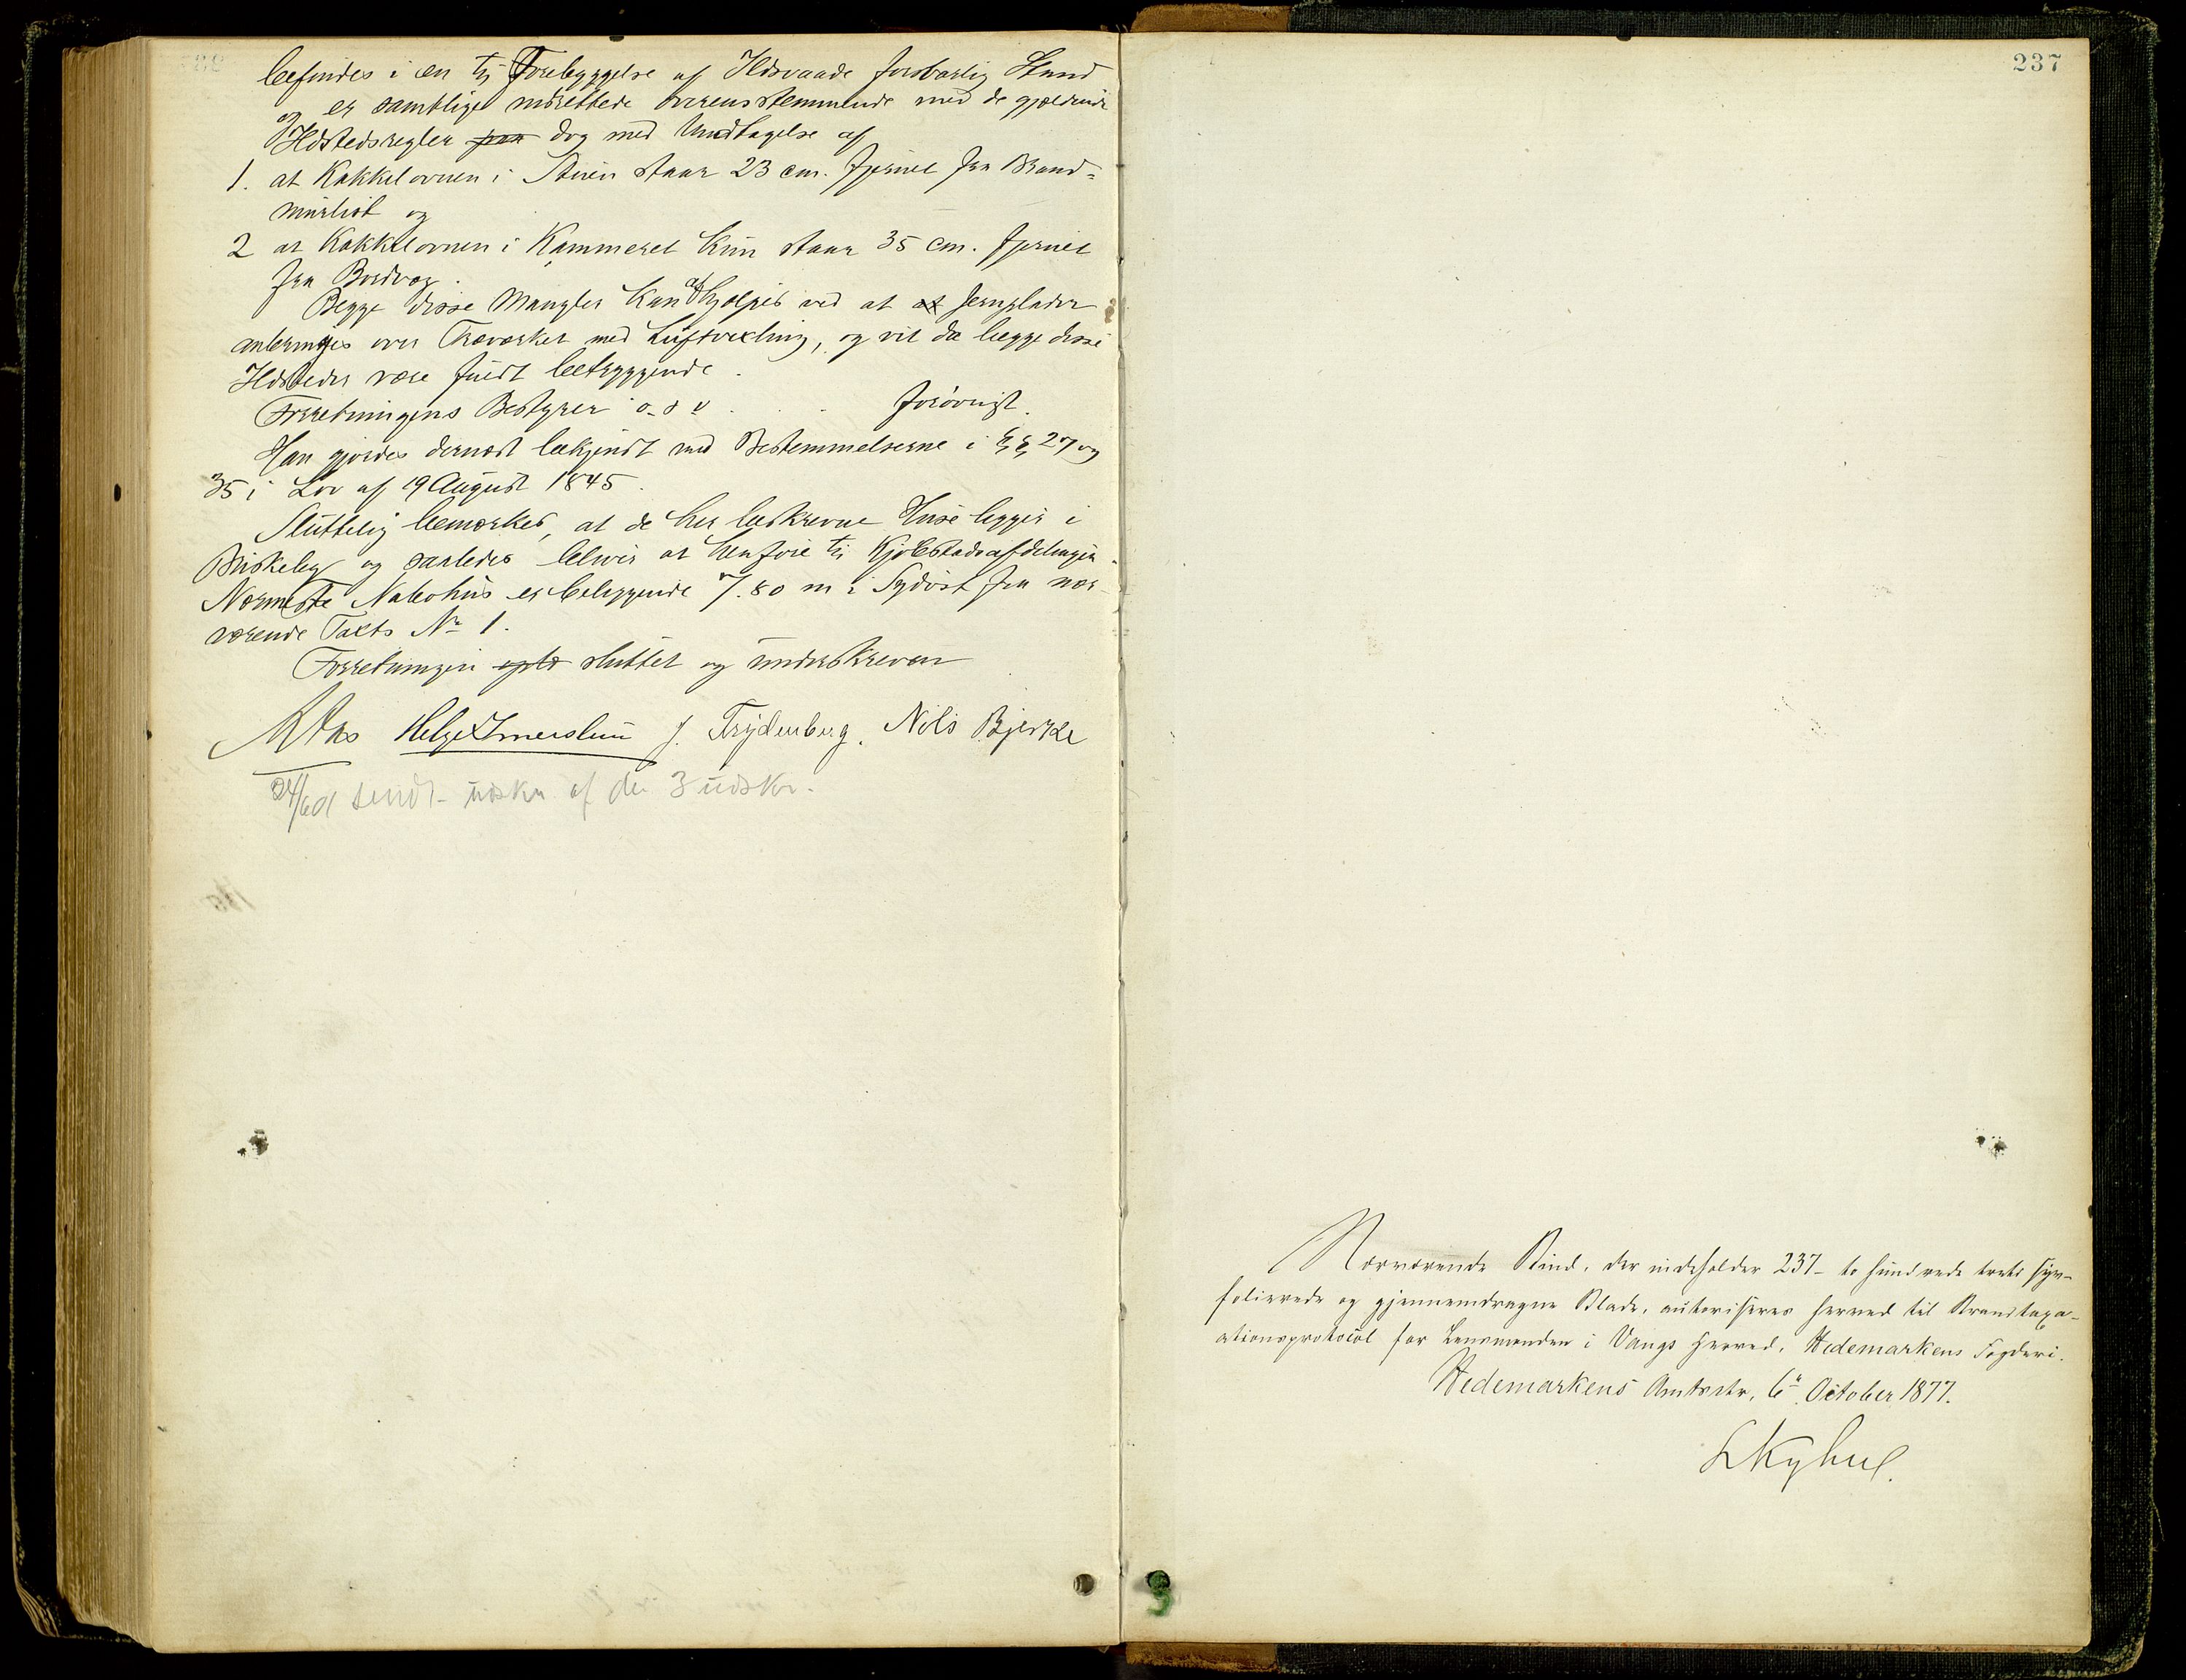 befindes i en til Forebyggelse af Ildsvaade forsvarlig Stand
og er samtlige indrettede overensstemmende med de gjældende
Ildstedsregler dog med Undtagelse af
1. at Kakkelovnen i Stuen staar 23 cm. fjernet fra Brand-
murlist og
2 at Kakkelovnen i Kammeret kun staar 35 cm. fjernet
fra Bordvæg.
Begge disse Mangler kan afhjælpes ved at at Jernplader
anbringes over Træværket med Luftvexling, og vil da begge disse
Ildsteder være fuldt betryggende.
Forretningens Bestyrer o. s. v. . . forøvrigt.
Han gjordes dernæst bekjendt med Bestemmelserne i §§ 27 og
35 i Lov af 19 August 1845.
Sluttelig bemærkes, at de her beskrevne Huse ligger i
Briskeby og saaledes bliver at henføre til Kjøbstadsafdelingen.
Nærmeste Nabohus er beliggende 7.80 m i Sydøst fra nær-
værende Taxts No 1.
Forretningen sluttet og underskreven
Helge Imerslun J. Frydenberg. Nils Bjerke
sendt udskr. af de 3 udskr.
237
Nærværende Bind, der indeholder 237 - to hundrede treti syv -
folierede og gjennemdragne Blade, autoriseres herved til Brandtaxa-
ationsprotocol for Lensmanden i Vangs Herred, Hedemarkens Fogderi.
Hedemarkens Amtsstr, 6te October 1877.